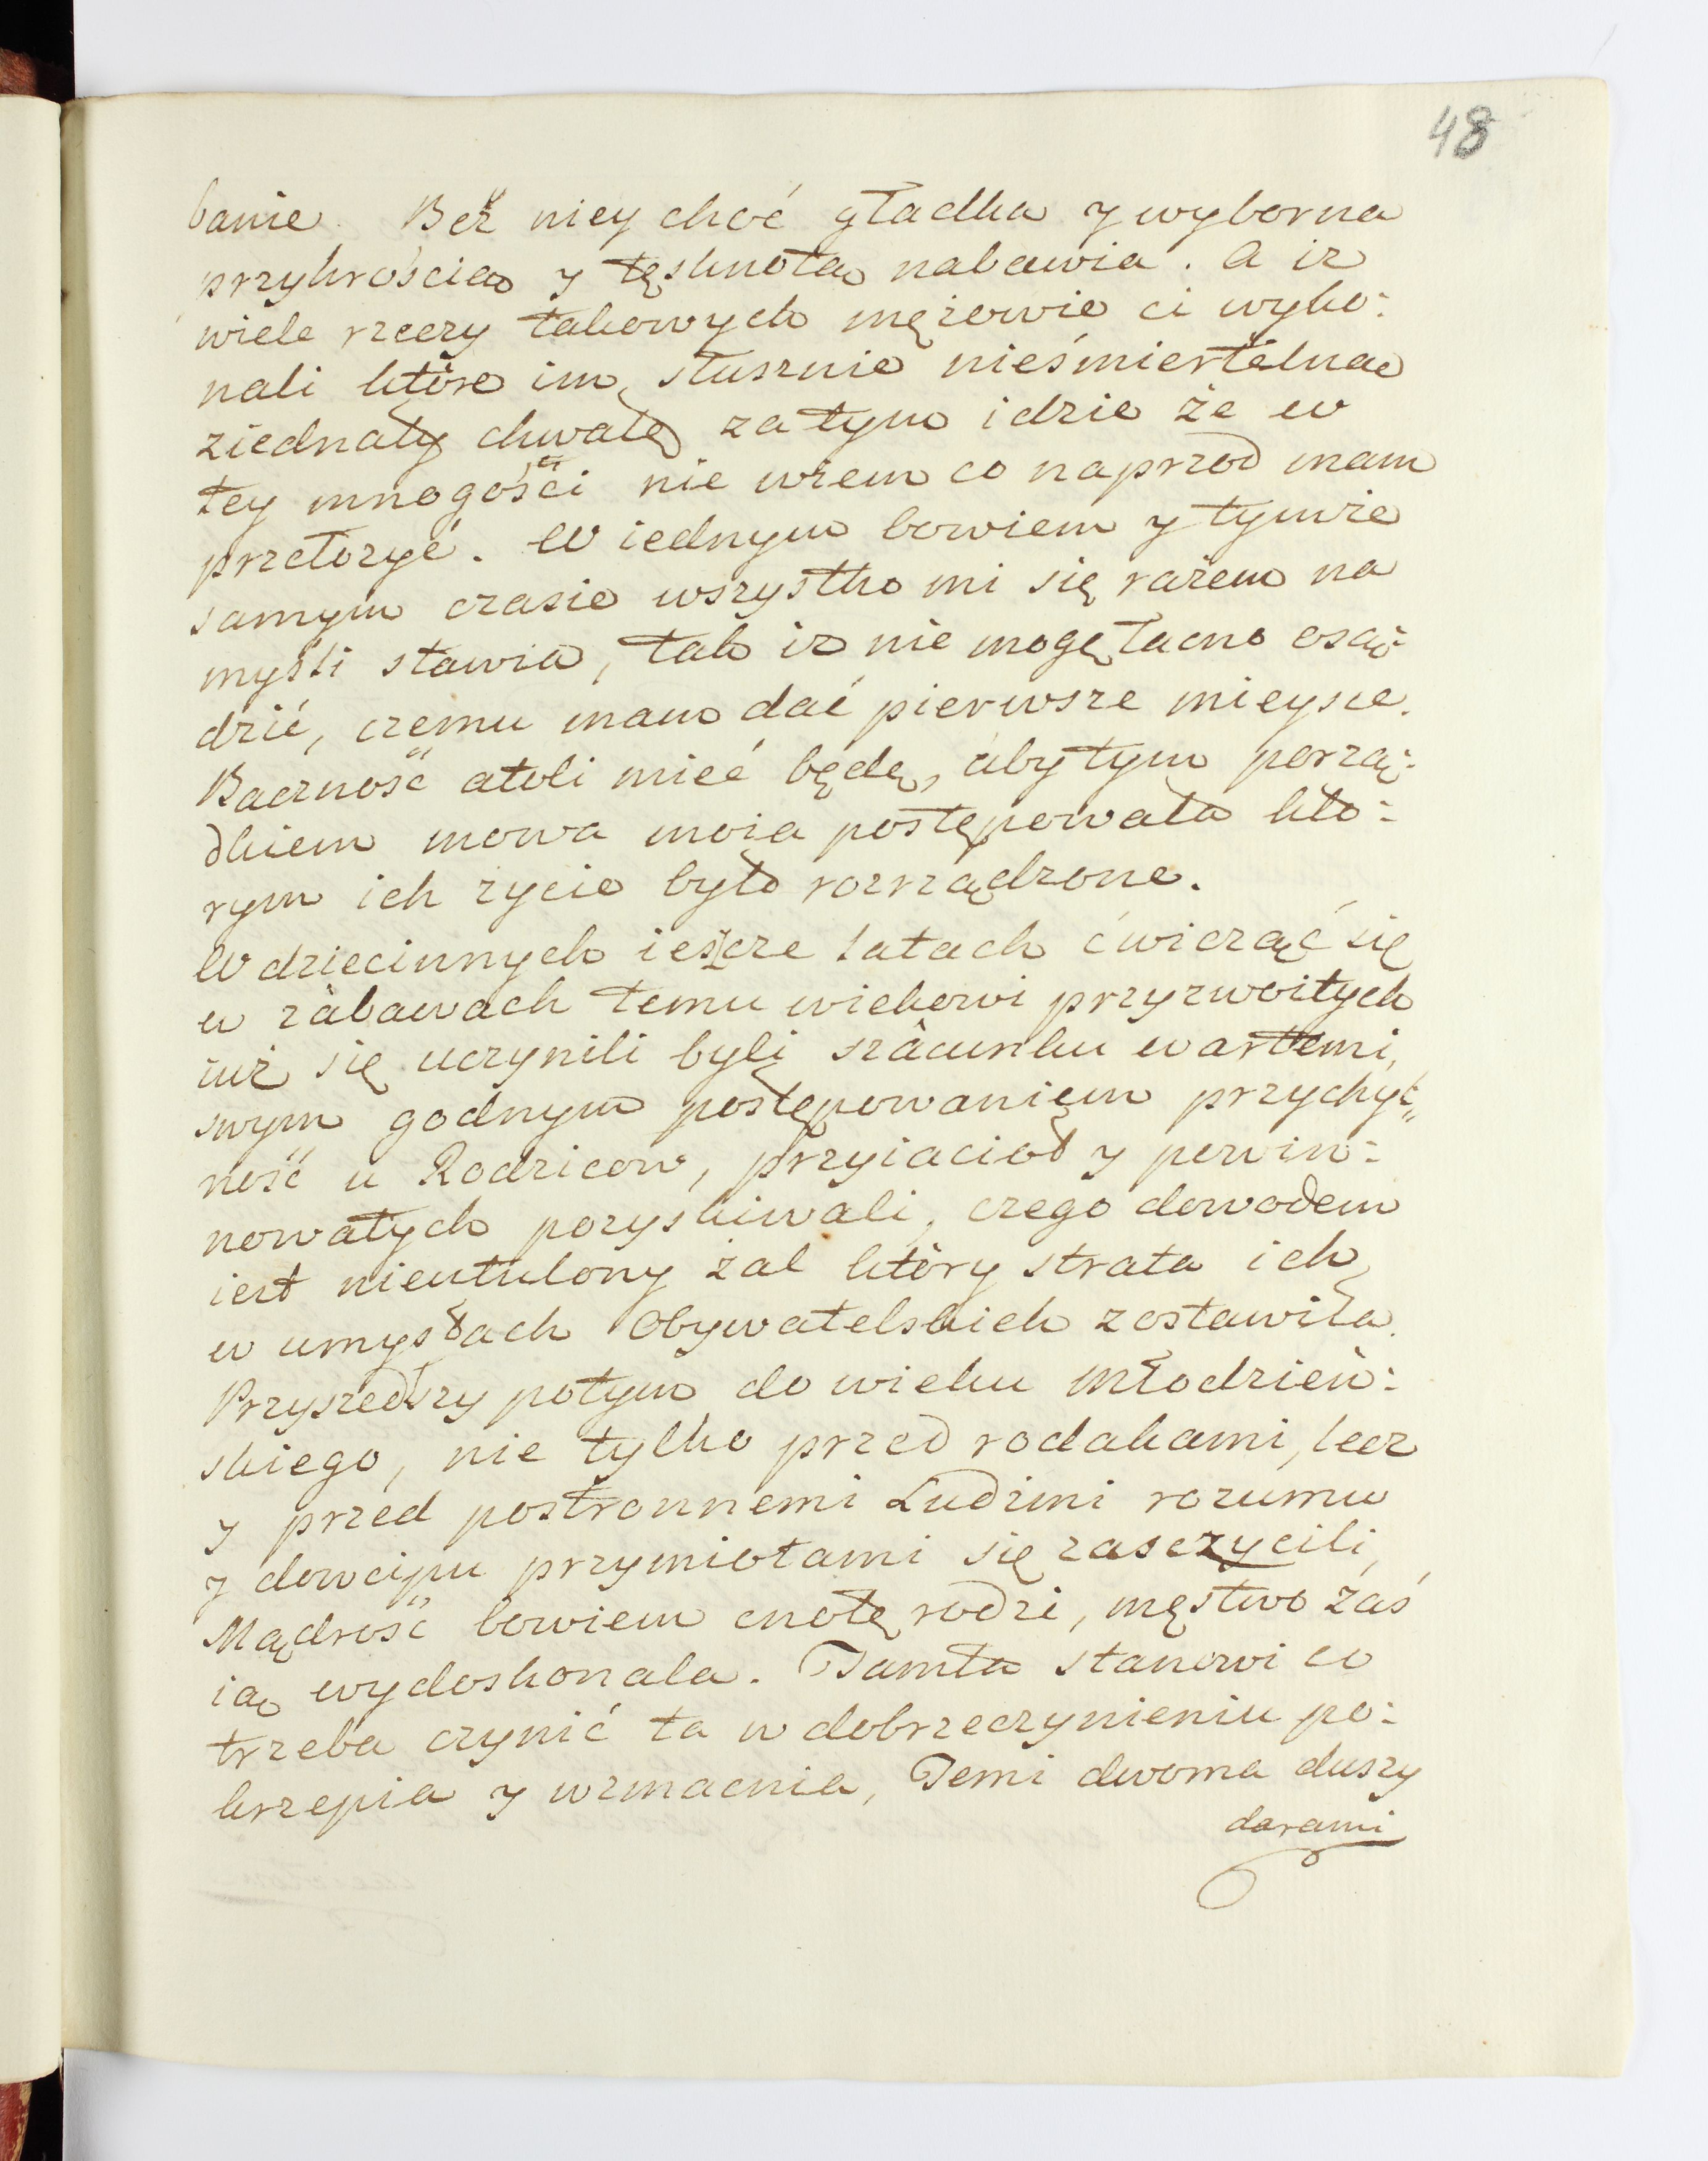 48
banie. Beż niey choć gładka y wyborna
przykrością y tęsknotą nabawia. A iz
wiele rzeczy takowych mężowie ci wyko:
nali które im słusznie nieśmiertelną
ziednały chwałę zatym idzie że w
tey mnogości nie wiem co naprzod mam
przełozyć. W iednym bowiem y tymże
samym czasie wszystko mi się rażem na
myśli stawia, tak iz nie mogę łacno osą:
dzić, czemu mam dać pierwsze mieysce.
Baczność atoli mieć będę, aby tym porzą:
dkiem mowa moia postępowała kto:
rym ich życie było rozrządzone.
W dziecinnych iescze latach ćwicząć się
w zabawach temu wiekowi przyzwoitych
iuż się uczynili byli szacunku wartemi,
swym godnym postępowaniem przychyl„
ność u Rodzicow, przyiacioł y powin:
nowatych pozyskiwali, czego dowodem
iest nieutulony żal który strata ich
w umysłach Obywatelskich zostawiła.
Przyszedłszy potym do wieku młodzień:
skiego, nie tylko przed rodakami, lecz
y przed postronnemi Ludzmi rozumu
y dowcipu przymiotami się zasczycili,
Mądrość bowiem cnotę rodzi, męstwo żaś
ią wydoskonala. Tamta stanowi co
trzeba czynić ta w dobrzeczynieniu po:
krzepia y wzmacnia, Temi dwoma duszy
darami